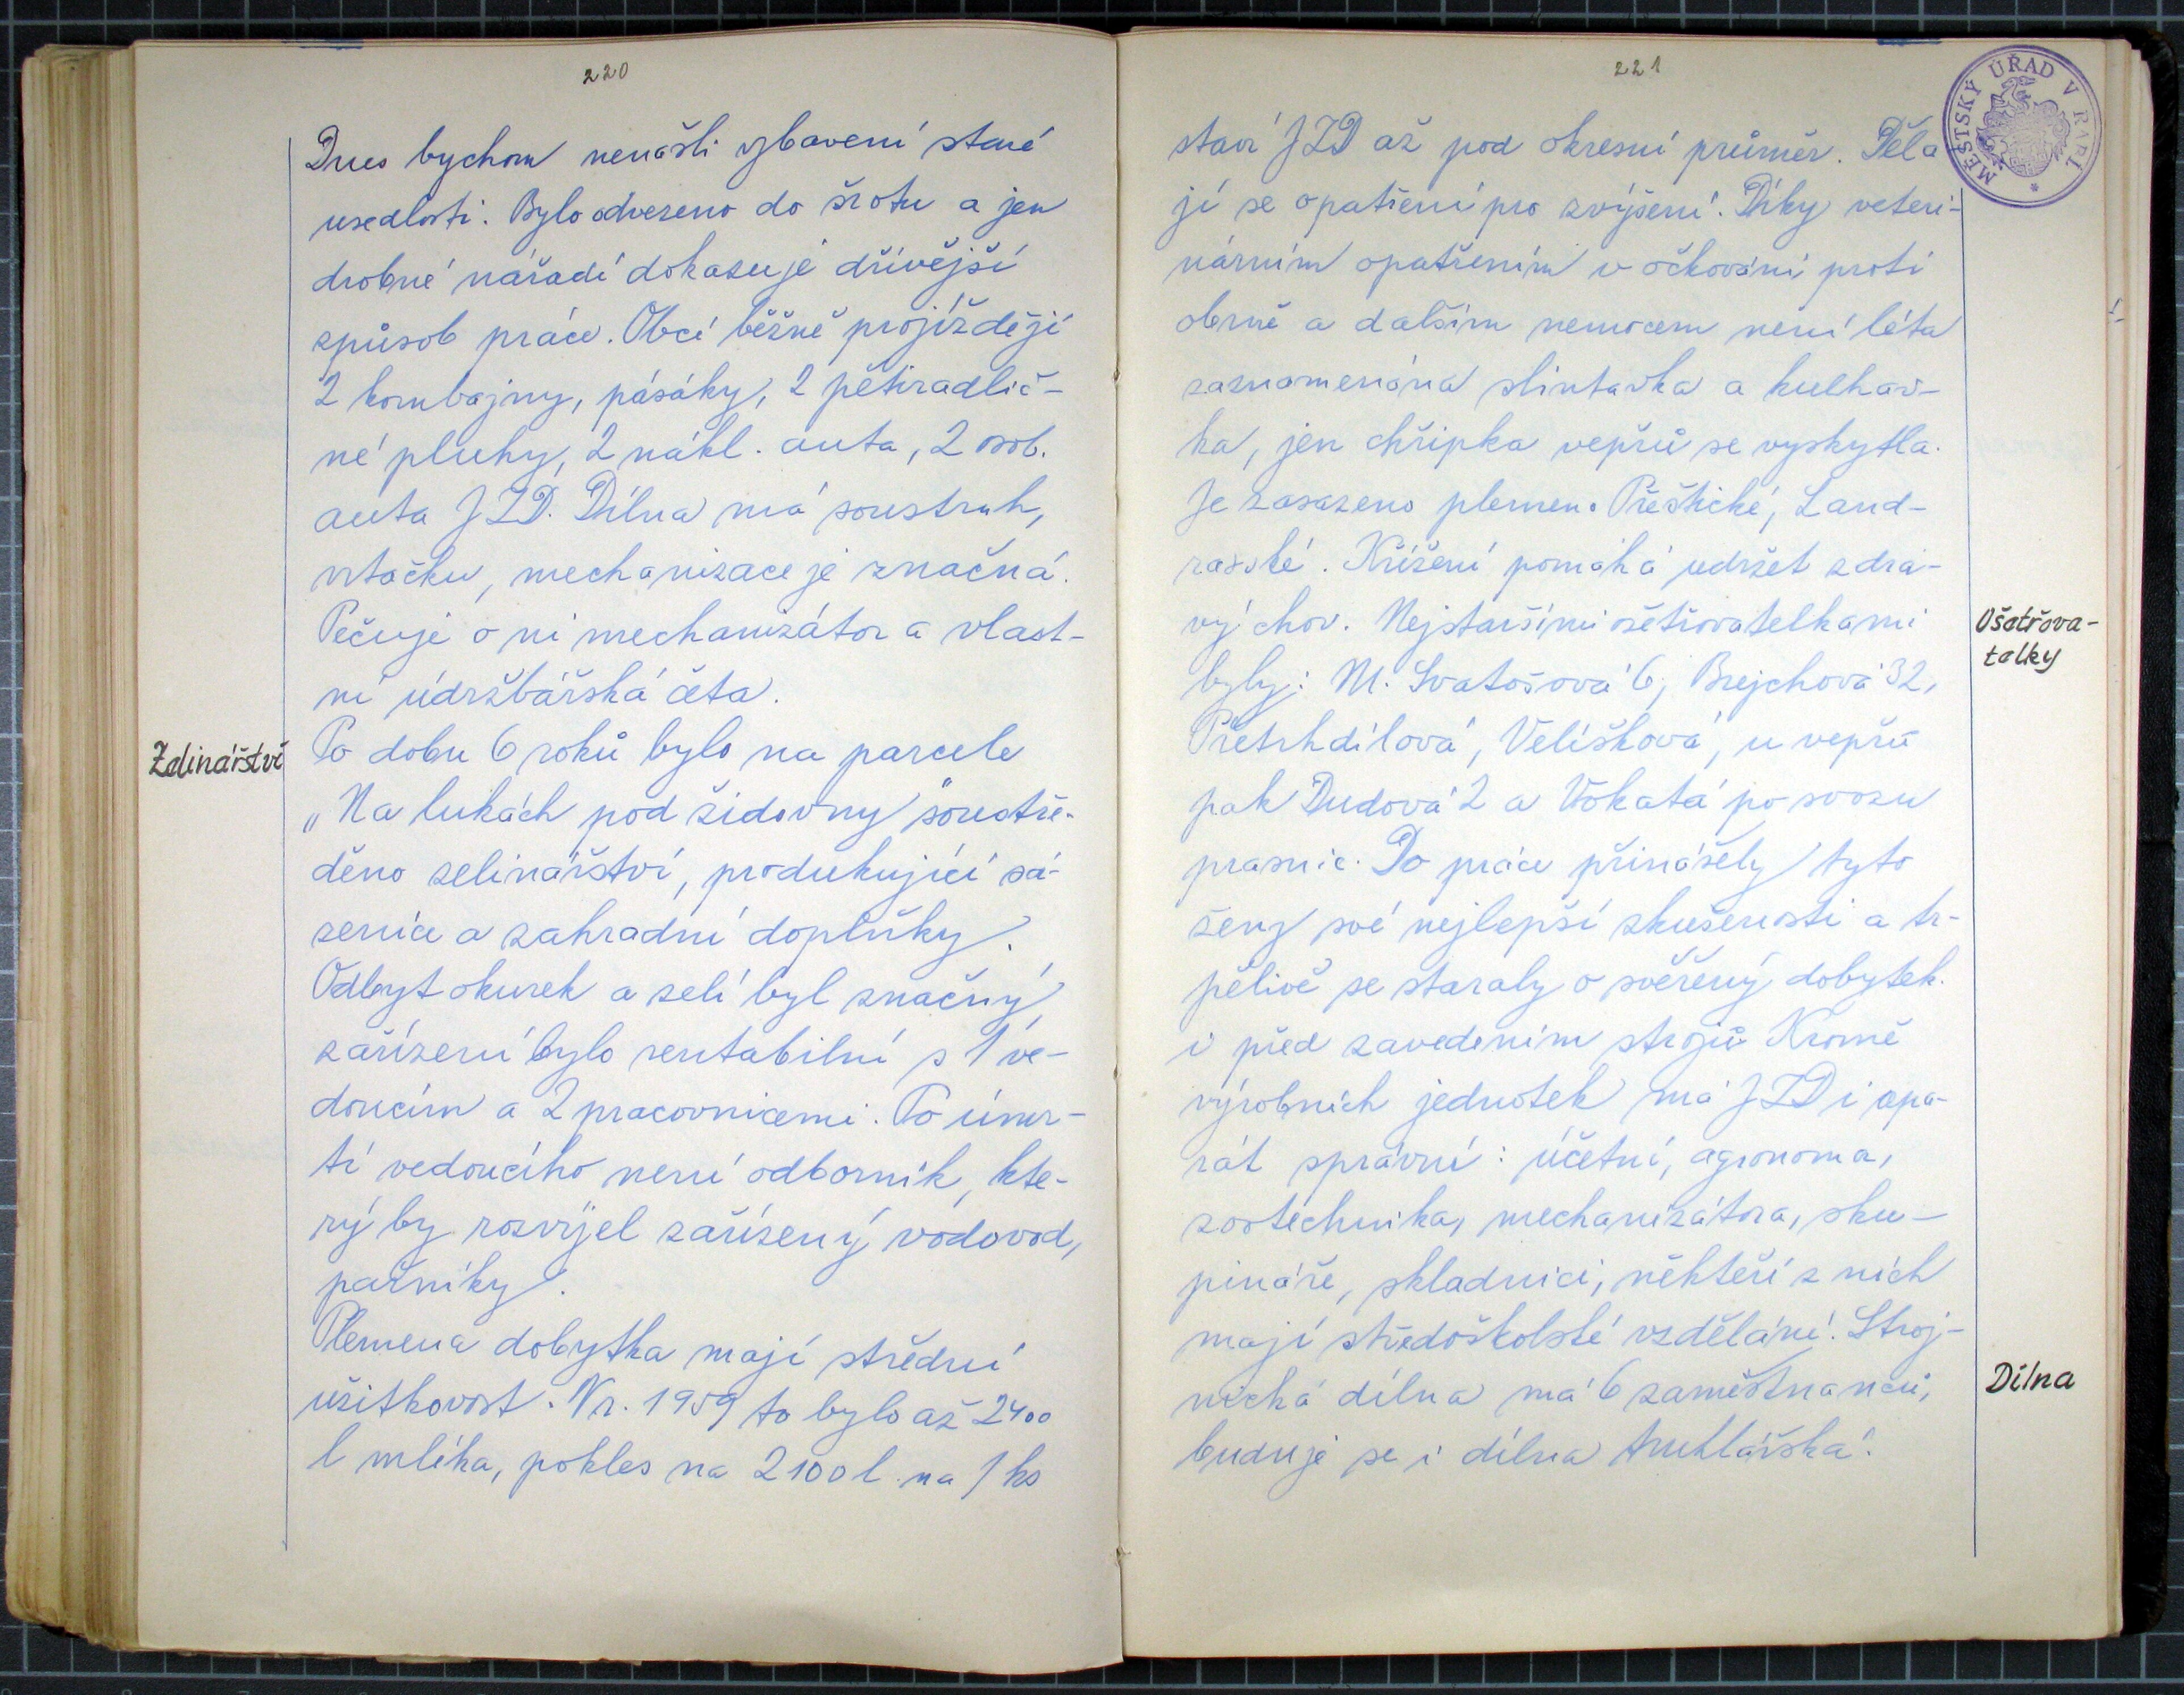 220
Dnes bychom nenašli vybavení staré
usedlosti. Bylo odvezeno do šrotu a jen
drobné nářadí dokazuje dřívější
způsob práce. Obcí běžně projíždějí
2 kombajny, pásáky, 2 pětiradlič-
né pluhy, 2 nákl. auta, 2 osob.
auta JZD. Dílna má soustruh,
vrtačku, mechanizace je značná.
Pečuje o ni mechanizátor a vlast-
ní údržbářská četa.
Zelinářství
Po dobu 6 roků bylo na parcele
„Na lukách pod židovny" soustře-
děno zelinářství, produkující sa-
zenice a zahradní doplňky.
Odbyt okurek a zelí byl značný,
zařízení bylo rentabilní s 1 ve-
doucím a 2 pracovnicemi. Po úmr-
tí vedoucího není odborník, kte-
rý by rozvíjel zařízený vodovod,
pařníky.
Plemena dobytka mají střední
užitkovost. V r. 1959 to bylo až 2400
l mléka, pokles na 2100 l na 1 ks
221
MĚSTSKÝ ÚŘAD V RABÍ
staví JZD až pod okresní průměr. Děla
jí se opatření pro zvýšení. Díky veteri-
nárním opatřením v očkování proti
obrně a dalším nemocem není léta
zaznamenána slintavka a kulhav-
ka, jen chřipka vepřů se vyskytla.
Je zasazeno plemen. Přeštické, Land-
rasské. Křížení pomáhá udržet zdra-
vý chov. Nejstaršími ošetřovatelkami
Ošetřova-
telky
byly: M. Svatošová 6, Brejchová 32,
Přetrhdílová, Velíšková, u vepřů
pak Dudová 2 a Vokatá po svozu
prasnic. Do práce přinášely tyto
ženy své nejlepší zkušenosti a tr-
pělivě se staraly o svěřený dobytek.
i před zavedením strojů. Kromě
výrobních jednotek má JZD i apa-
rát správní: účetní, agronoma,
zootechnika, mechanizátora, sku-
pináře, skladnici, někteří z nich
mají středoškolské vzdělání. Stroj-
nická dílna má 6 zaměstnanců,
Dílna
buduje se i dílna truhlářská.